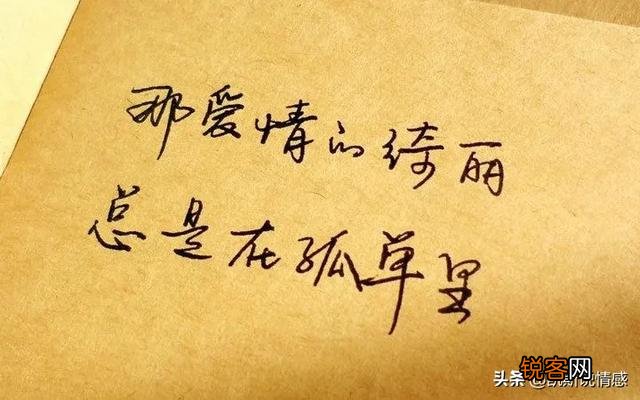 那爱情的绮丽
总是在孤单里
锐客网
头条 @说情感